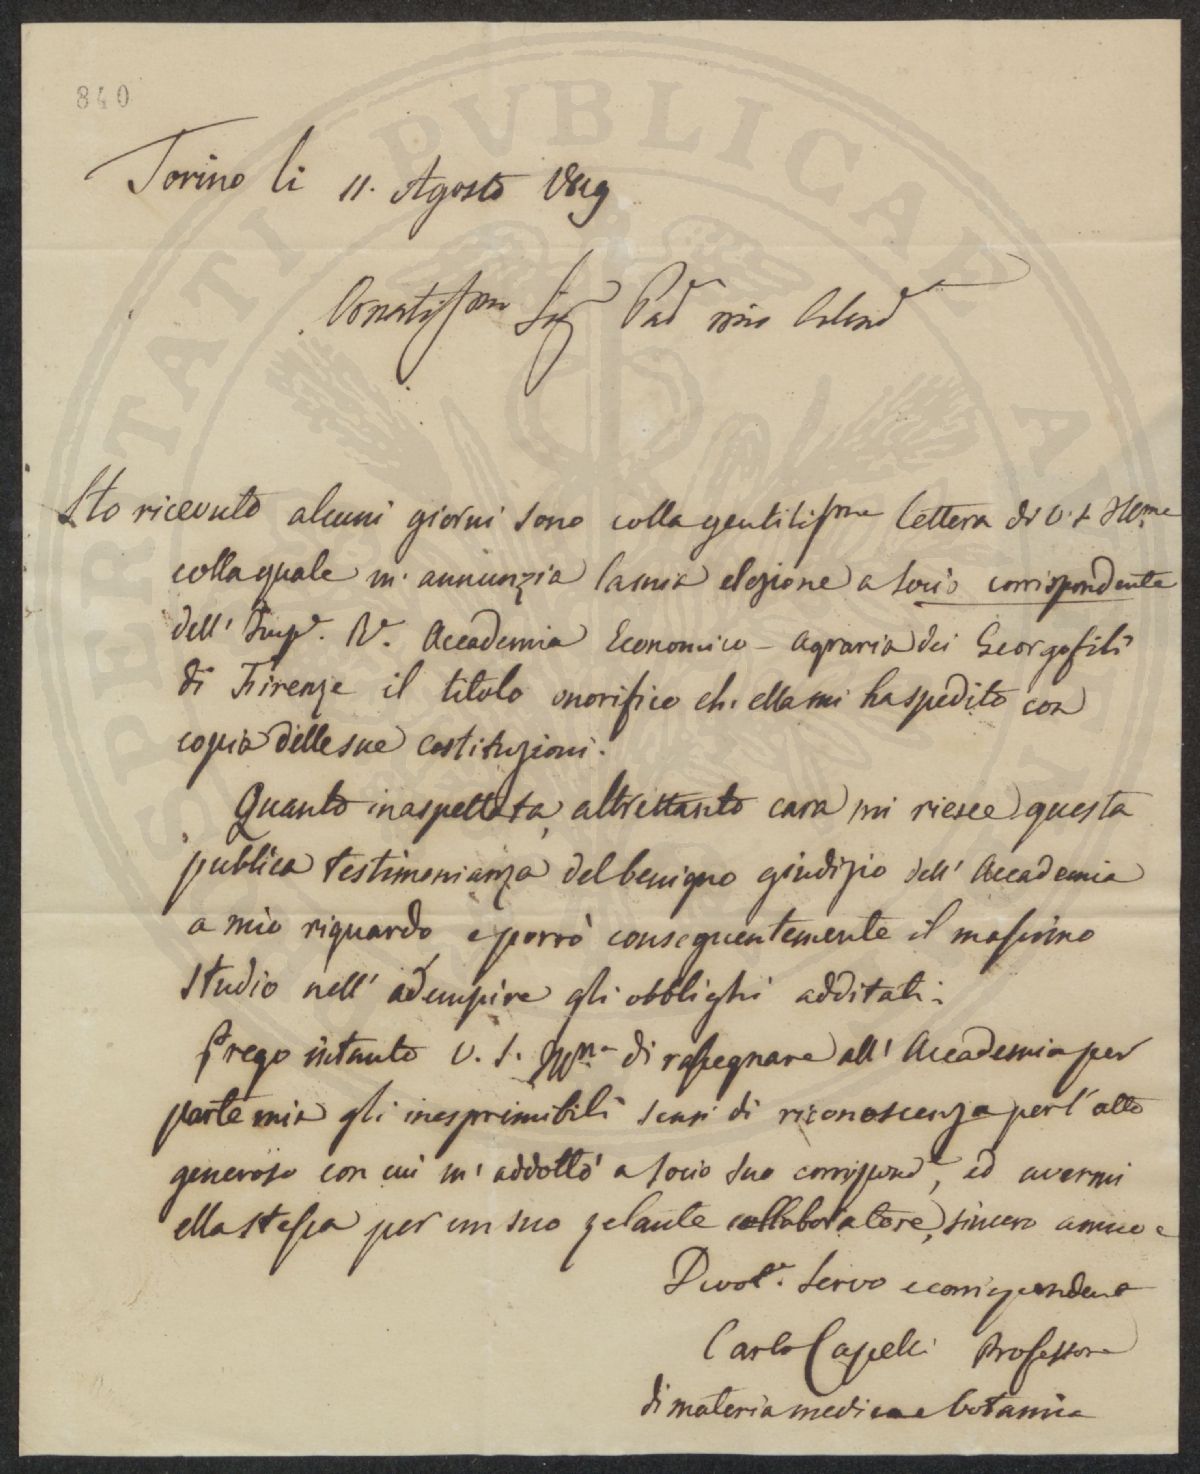 840
Torino li 11. Agosto 1819
Ornatissmo Sigr Pad mio Colend
Ho ricevuto alcuni giorni sono colla gentilissma lettera di V. S. Illma
colla quale m'annunzia la mia elezione a socio corrispondente
dell' Imp. R. Accademia Economico - Agraria dei Georgofili
di Firenze il titolo onorifico ch'ella mi ha spedito con
copia delle sue costituzioni.
Quanto inaspettata, altrettanto cara mi riesce questa
publica testimonianza del benigno giudizio dell' Accademia
a mio riguardo, e porrò conseguentemente il massimo
studio nell' adempire gli obblighi additati.
Prego intanto V. S. Illma di rassegnare all' Accademia per
parte mia gli inesprimibili sensi di riconoscenza per l'atto
generoso con cui m' addottò a socio suo corrispond, ed avermi
ella stessa per un suo zelante collaboratore, sincero amico e
Divot. servo e corrispondente
Carlo Capelli Professore
di materia medica e botanica